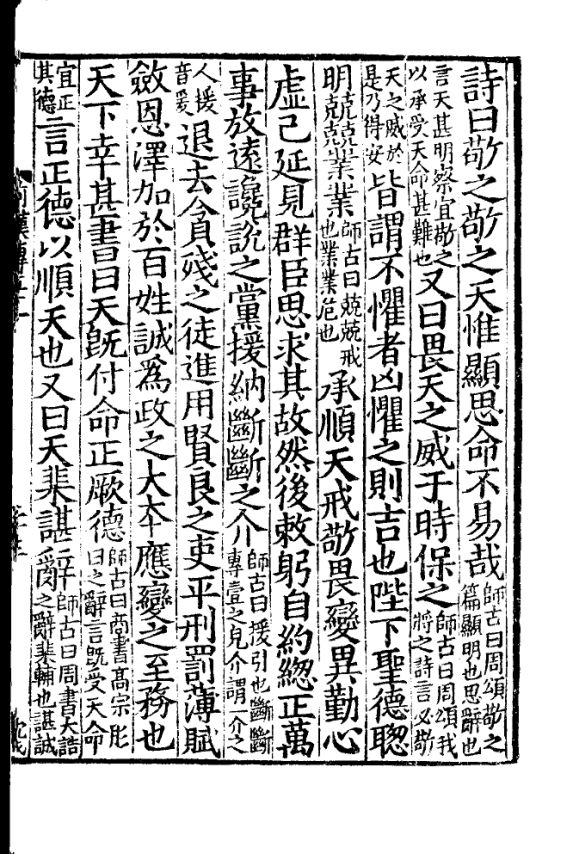 詩曰敬之敬之天惟顯思命不易哉師古曰周頌敬之篇顯明也思辭也
言天甚明察宜敬之以承受天命甚難也又曰畏天之威于時保之師古曰周頌我將之詩言必敬
天之威於是乃得安皆謂不懼者凶懼之則吉也陛下聖德聦
明兢兢業業師古曰兢兢戒也業業危也承順天戒敬畏變異勤心
虛己延見群臣思求其故然後敕躬自約緫正萬
事放遠讒說之黨援納斷斷之介師古曰援引也斷斷專壹之見介謂一介之
人援音爰退去貪殘之徒進用賢良之吏平刑罰薄賦
斂恩澤加於百姓誠為政之大本應變之至務也
天下幸甚書曰天旣付命正厥德師古曰商書高宗肜日之辭言旣受天命
宜正其德言正德以順天也又曰天棐諶辭師古曰周書大誥之辭棐輔也諶誠